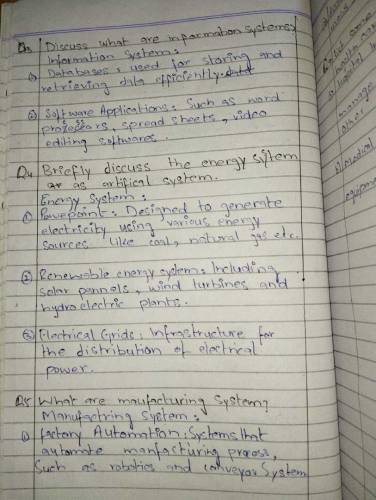 Q3 Discuss what are information systems?
Information System:
① Databases: used for storing and
retrieving data efficiently.
② Software Applications: Such as word
processors, spread sheets, video
editing softwares.
Q4 Briefly discuss the energy system
as artifical system.
Energy System:
① Powerpoint: Designed to generate
electricity using various energy
sources like coal, natural gas etc.
② Renewable energy system: Including
solar pannels, wind turbines and
hydroelectric plants.
③ Electrical Grids: Infrastructure for
the distribution of electrical
power.
Q5 What are maufacturing System?
Manufactring System:
① factory Automation: Systems that
automate manfacturing process,
Such as robotics and conveyor System
manage
other
② medical
equipme